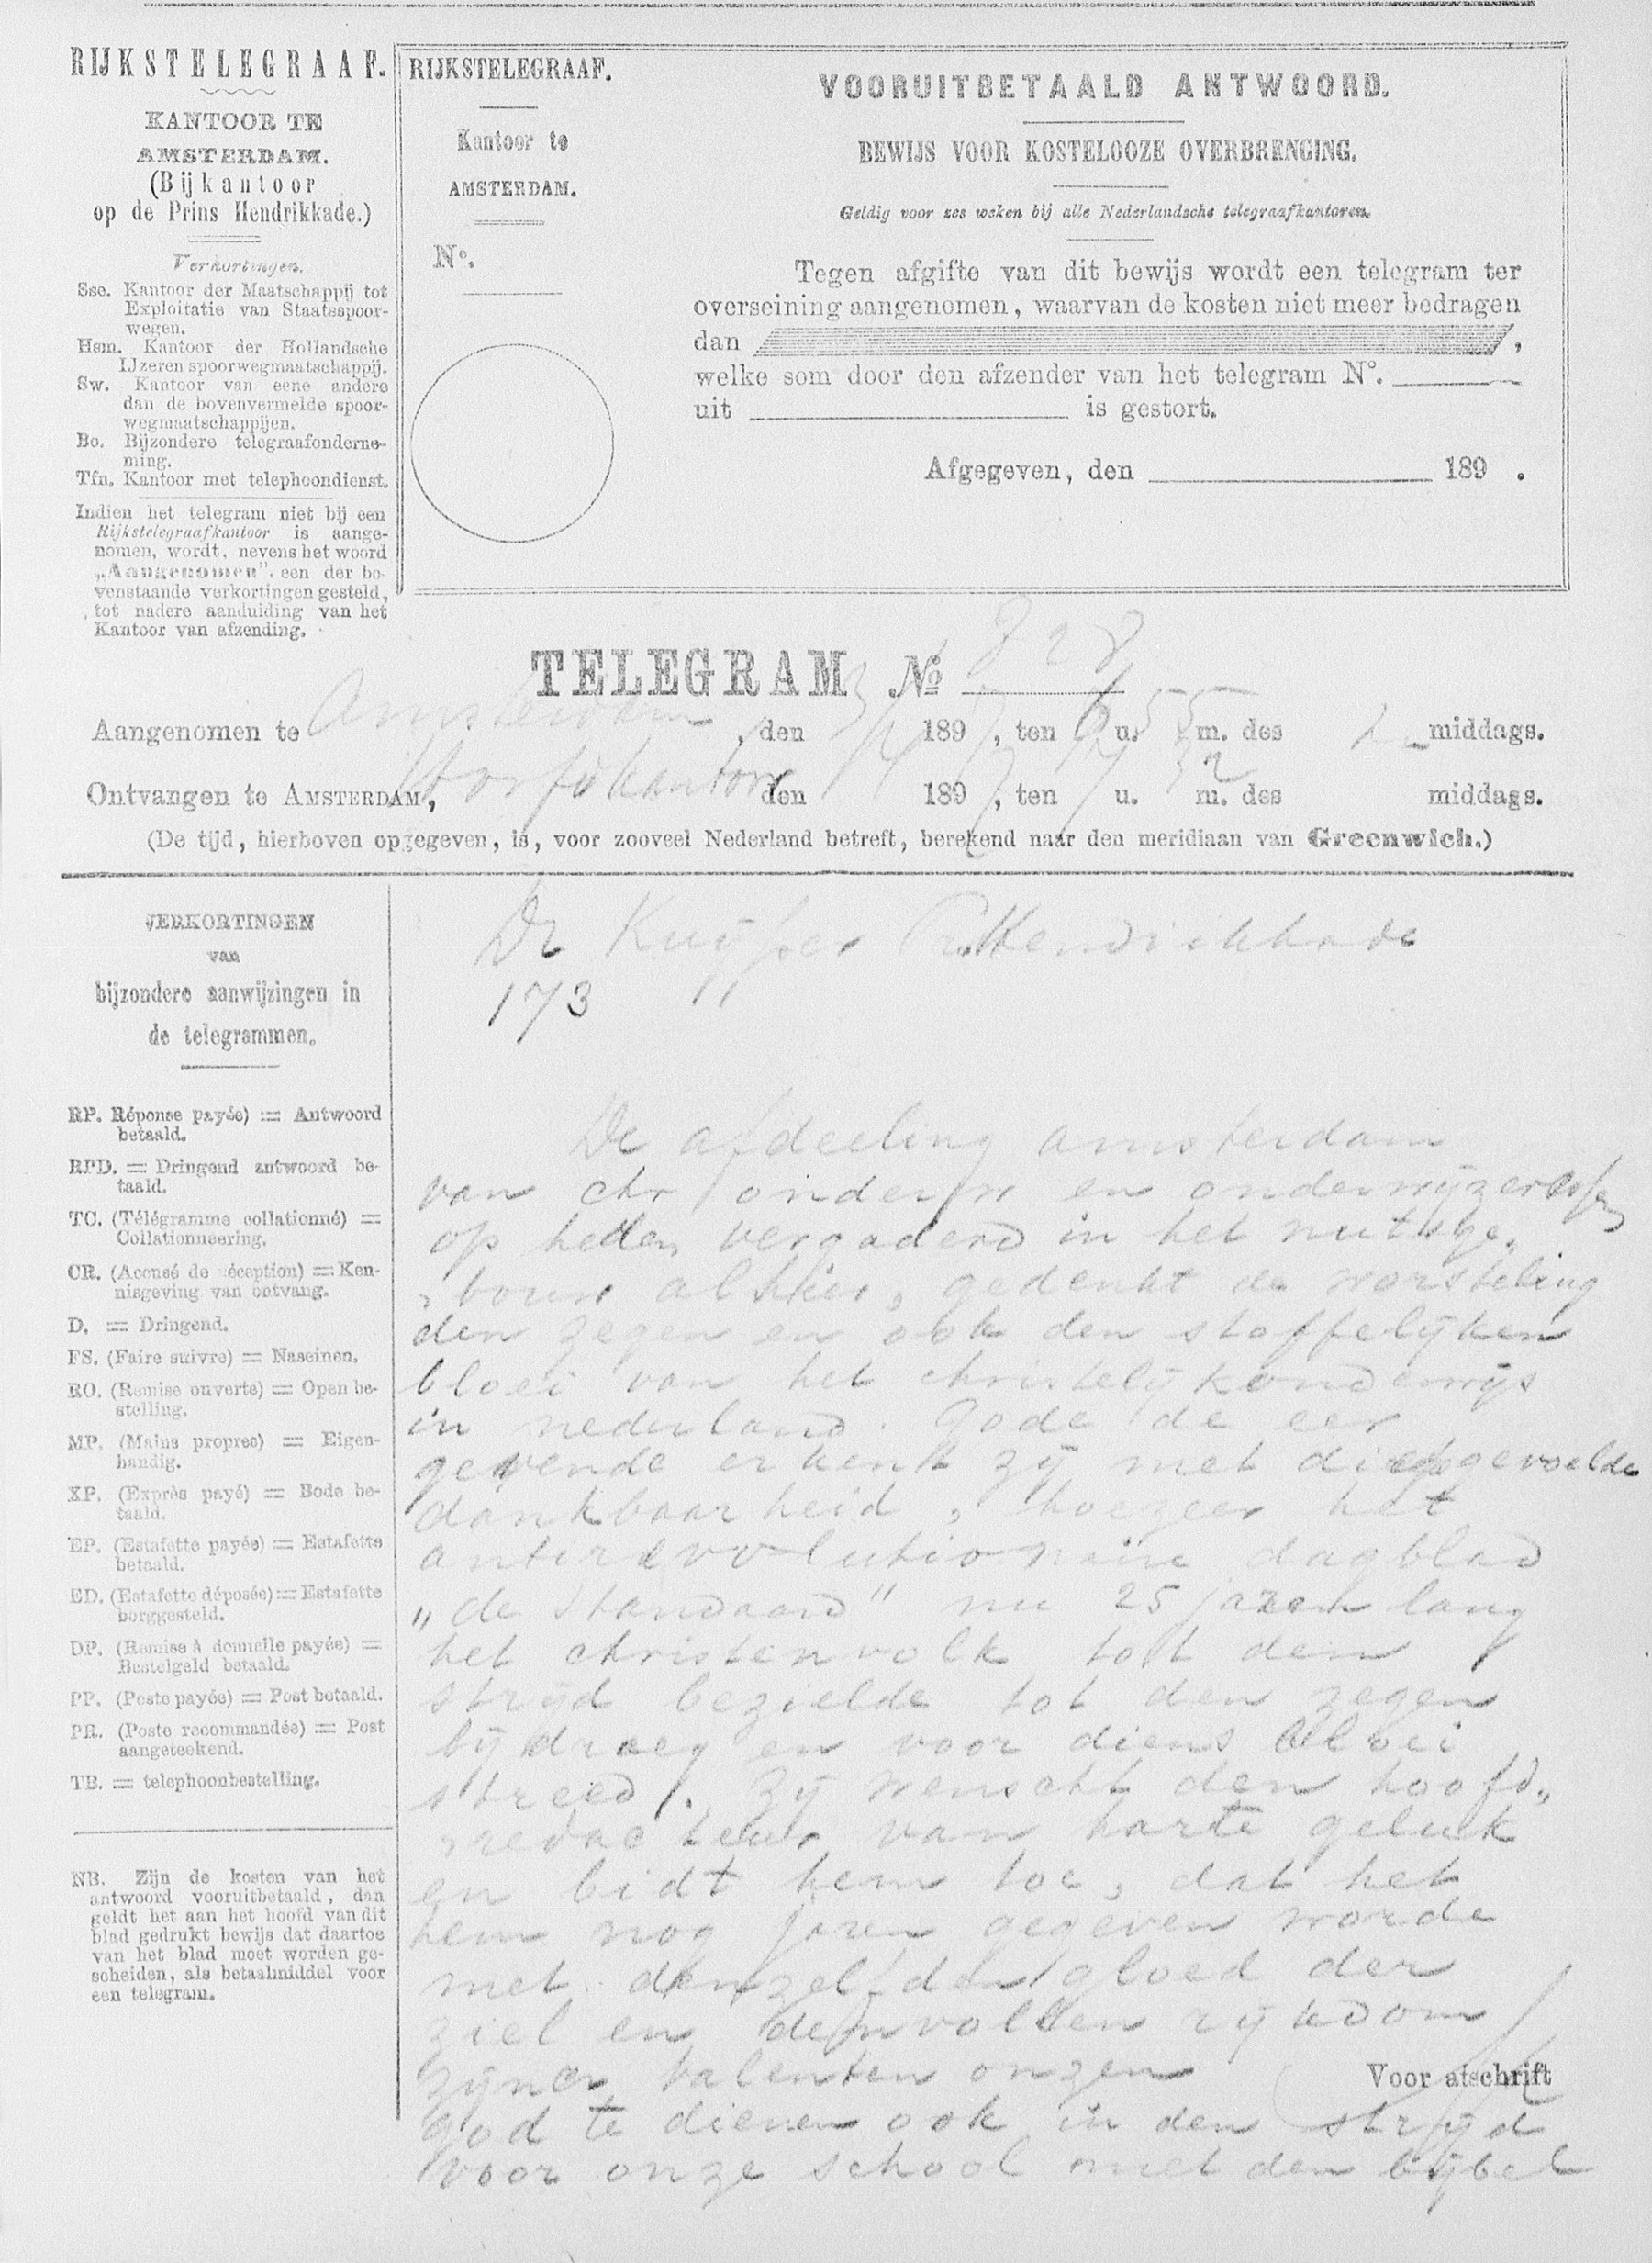 RIJKSTELEGRAAF.
KANTOOR TE
AMSTERDAM.
(Bijkantoor
op de Prins Hendrikkade.)
Verkortingen.
Sse. Kantoor der Maatschappij tot
Exploitatie van Staatsspoor-
wegen.
Hsm. Kantoor der Hollandsche
IJzeren spoorwegmaatschappij.
Sw. Kantoor van eene andere
dan de bovenvermelde spoor-
wegmaatschappijen.
Bo. Bijzondere telegraafonderne-
ming.
Tfn. Kantoor met telephoondienst.
Indien het telegram niet bij een
Rijkstelegraafkantoor is aange-
nomen, wordt, nevens het woord
„Aangenomen", een der bo-
venstaande verkortingen gesteld,
tot nadere aanduiding van het
Kantoor van afzending.
RIJKSTELEGRAAF.
Kantoor te
AMSTERDAM.
No.
VOORUITBETAALD ANTWOORD.
BEWIJS VOOR KOSTELOOZE OVERBRENGING.
Geldig voor zes weken bij alle Nederlandsche telegraafkantoren.
Tegen afgifte van dit bewijs wordt een telegram ter
overseining aangenomen, waarvan de kosten niet meer bedragen
dan ,
welke som door den afzender van het telegram No.
uit is gestort.
Afgegeven, den 189 .
TELEGRAM No 828
Aangenomen te Amsterdam, den 3/4 1897, ten 6 u. 55 m. des middags.
Ontvangen te AMSTERDAM, den 1897, ten 7 u. 32 m. des middags.
(De tijd, hierboven opgegeven, is, voor zooveel Nederland betreft, berekend naar den meridiaan van Greenwich.)
VERKORTINGEN
van
bijzondere aanwijzingen in
de telegrammen.
RP. Réponse payée) = Antwoord
betaald.
RPD. = Dringend antwoord be-
taald.
TC. (Télégramme collationné) =
Collationneering.
CR. (Accusé de réception) = Ken-
nisgeving van ontvang.
D. = Dringend.
FS. (Faire suivre) = Naseinen.
RO. (Remise ouverte) = Open be-
stelling.
MP. (Mains propres) = Eigen-
handig.
XP. (Exprès payé) = Bode be-
taald.
EP. (Estafette payée) = Estafette
betaald.
ED. (Estafette déposée) = Estafette
borggesteld.
DP. (Remise à domicile payée) =
Bestelgeld betaald.
PP. (Poste payée) = Post betaald.
PR. (Poste recommandée) = Post
aangeteekend.
TB. = telephoonbestelling.
NB. Zijn de kosten van het
antwoord vooruitbetaald, dan
geldt het aan het hoofd van dit
blad gedrukt bewijs dat daartoe
van het blad moet worden ge-
scheiden, als betaalmiddel voor
een telegram.
Dr Kuijper Pr. Hendrikkade
173
De afdeeling amsterdam
van chr onderw en onderwijzeressen
op heden vergaderd in het nutsge„
„bouw alhier, gedenkt de worsteling
den zegen en ook den stoffelijken
bloei van het christelijk onderwijs
in nederland. Gode de eer
gevende erkent zij met diepgevoelde
dankbaarheid, hoezeer het
antirevolutionaire dagblad
„de Standaard" nu 25 jaren lang
het christenvolk tot den
strijd bezielde tot den zegen
bijdroeg en voor diens bloei
streed. Zij wenscht den hoofd„
„redacteur van harte geluk
en bidt hem toe, dat het
hem nog jaren gegeven worde
met denzelfden gloed der
ziel en den vollen rijkdom
zijner talenten onzen
Voor afschrift
god te dienen ook in den strijd
voor onze school met den bijbel